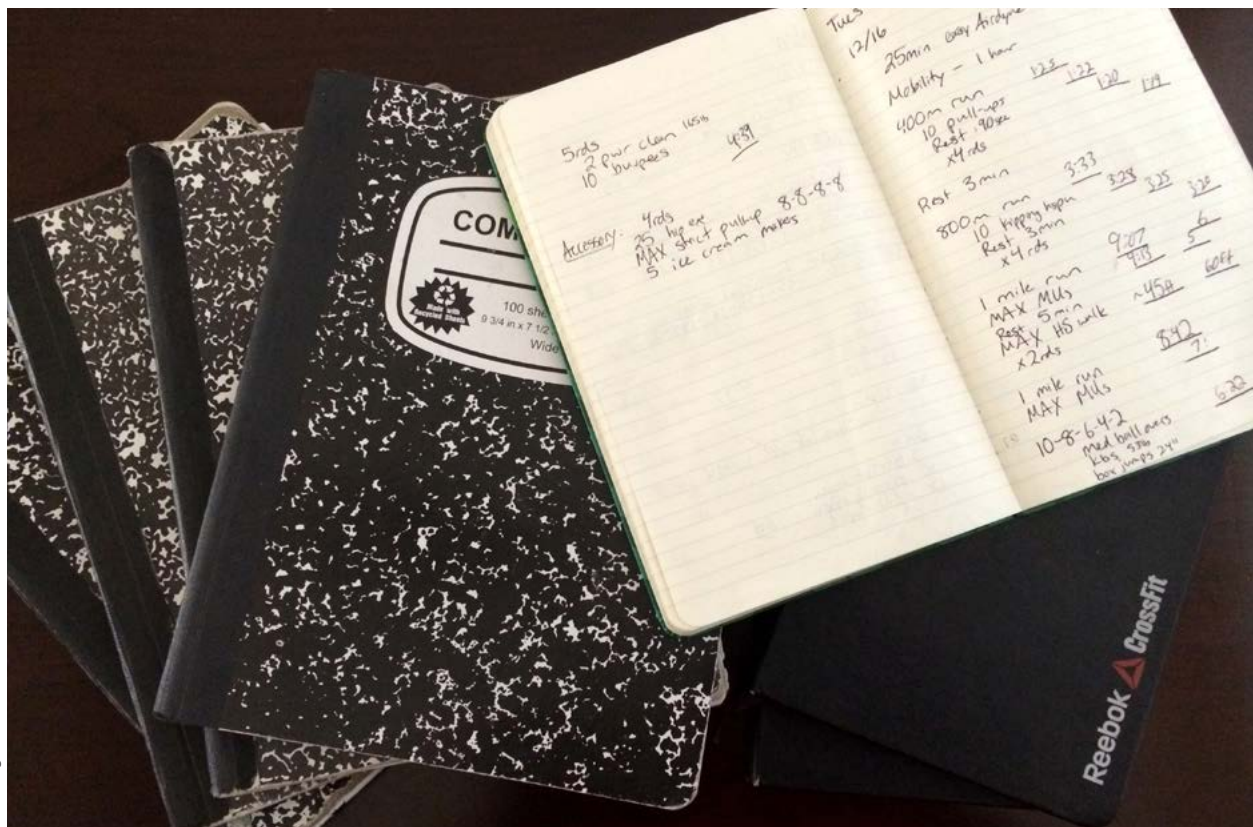 5rds
2 pwr clean 165lb
10 burpees 4:39
Accessory: 4rds
25 hip ext
MAX strict pullup 8-8-8-8
5 ice cream makers
Tues
12/16
25min easy Airdyne
Mobility - 1 hour
400m run 1:25 1:22 1:20 1:19
10 pull-ups
Rest :90sec
x4rds
Rest 3min
800m run 3:33 3:28 3:25 3:20
10 kipping hspu
Rest 3min
x4rds
1 mile run 9:07 9:13
MAX MUs 6 5
Rest 5min
MAX HS walk ~45ft 60ft
x2rds
1 mile run 8:42
MAX MUs 7!
10-8-6-4-2 6:22
med ball overs
kbs 53lb
box jumps 24"
COM
Made with
Recycled Sheets
100 she
9 3/4 in x 7 1/2
Wide
Reebok CrossFit